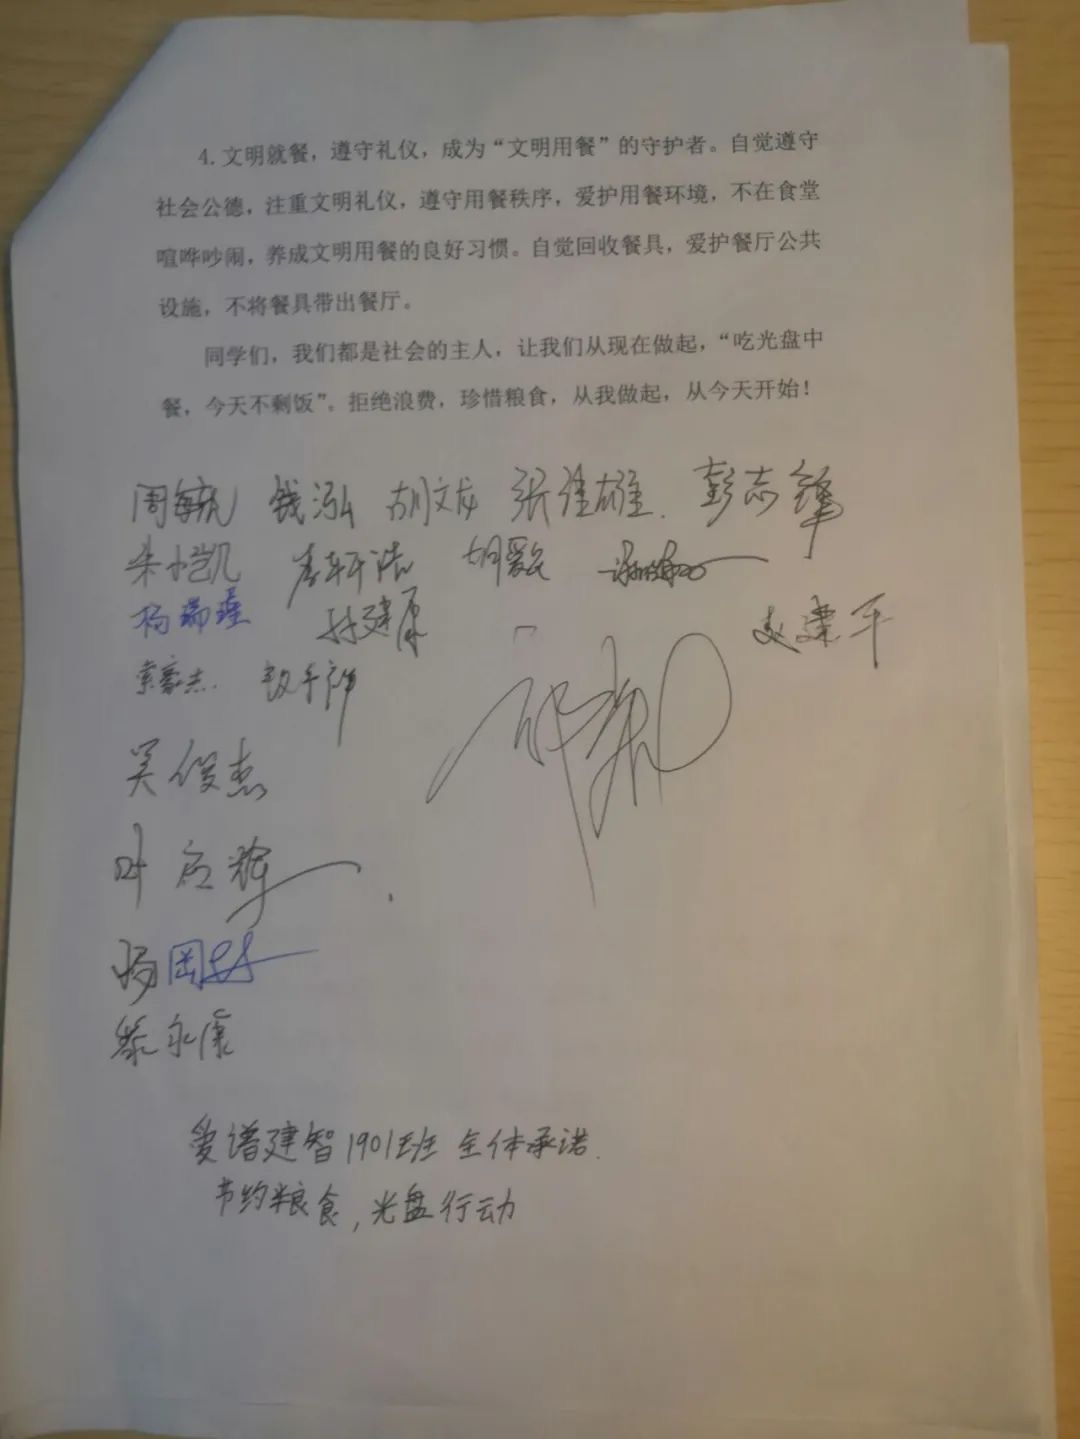 4. 文明就餐，遵守礼仪，成为“文明用餐”的守护者。自觉遵守
社会公德，注重文明礼仪，遵守用餐秩序，爱护用餐环境，不在食堂
喧哗吵闹，养成文明用餐的良好习惯。自觉回收餐具，爱护餐厅公共
设施，不将餐具带出餐厅。
同学们，我们都是社会的主人，让我们从现在做起，“吃光盘中
餐，今天不剩饭”。拒绝浪费，珍惜粮食，从我做起，从今天开始！
钱泓 胡文龙 张佳雄 彭志锋
朱小凯 李轩浩
孙建康 赵建平
索豪杰
吴俊杰
叶应辉
杨
黎永康
爱谱建智1901班 全体承诺.
节约粮食, 光盘行动